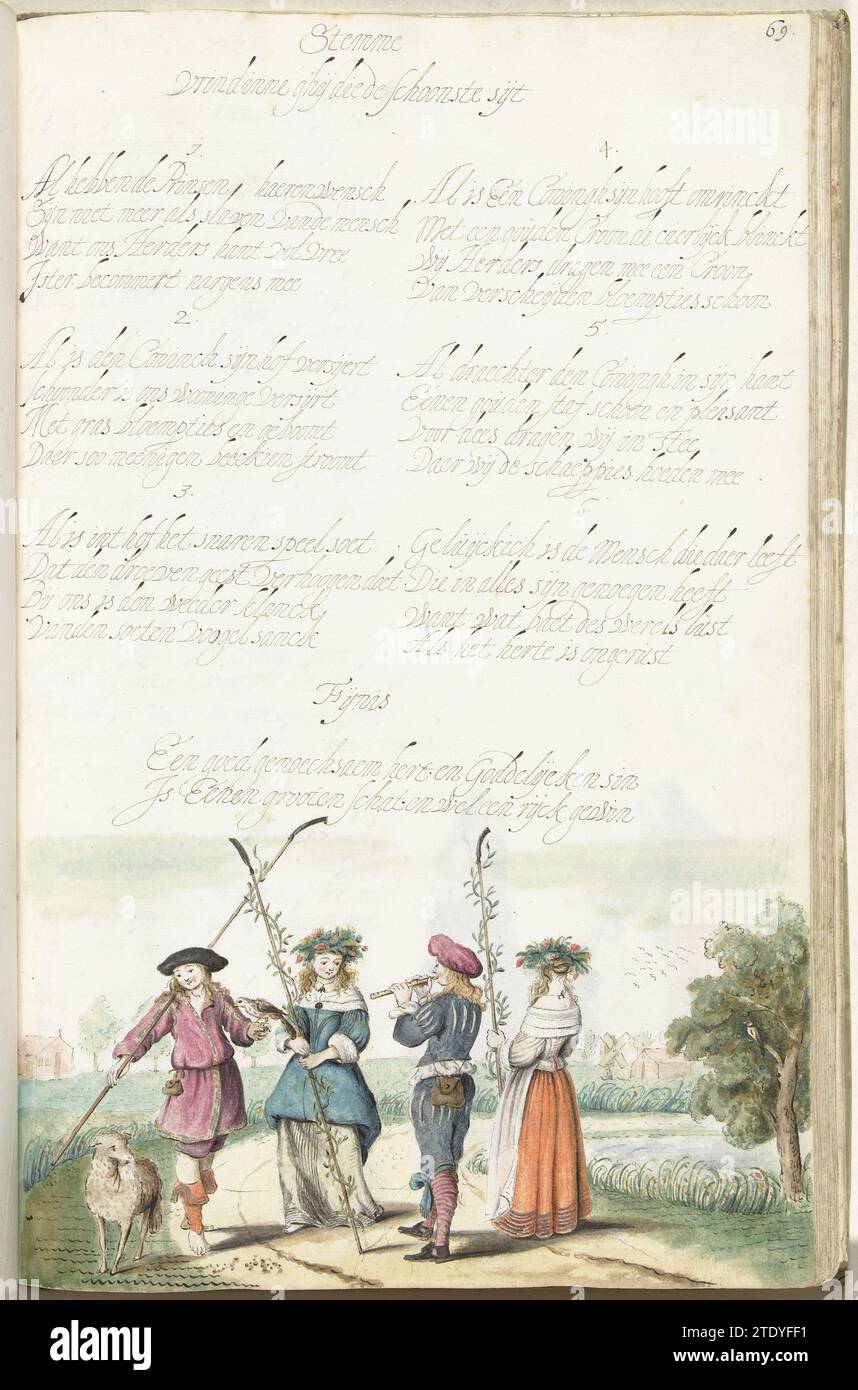 69.
Stemme
Vrindinne ghij die de schoonste sijt
1
Al hebben de Prinsen haeren wensch
Sijn niet meer als slaven vande mensch
Want ons Herders hant vol vree
Ister becommert nargens mee
2.
Al is den Coninck sijn hof versijert
Schoonder is ons wooninge versijrt
Met gras bloempties en geboomt
Daer soo meenigen beeckien stroomt
3.
Al is int hof het snaren speel soet
Dat den droeven geest verhoogen doet
Bij ons is den weeder klanck
Vanden soeten voogel sanck
4.
Al is Een Coningh sijn hooft omrinckt
Met een gouden Croon die cierlijck blinckt
Wij Herders dragen mee een Croon
Van verscheijden bloempties schoon
5
Al draechter den Coningh in sijn hant
Einen gouden staf schoon en plesant
Voor dees dragen wij in stee
Daer wij de schaeppies hoeden mee.
6
Geluijckich is de Mensch die daer leeft
Die in alles sijn genoegen heeft
Want wat baet des werels lust
Als het herte is ongerust
Fijnis
Een goed genoechsaem hert en Goddelijcken sin
Is Eenen grooten schat en wel een rijck gewin
alamy
2TDYFF1